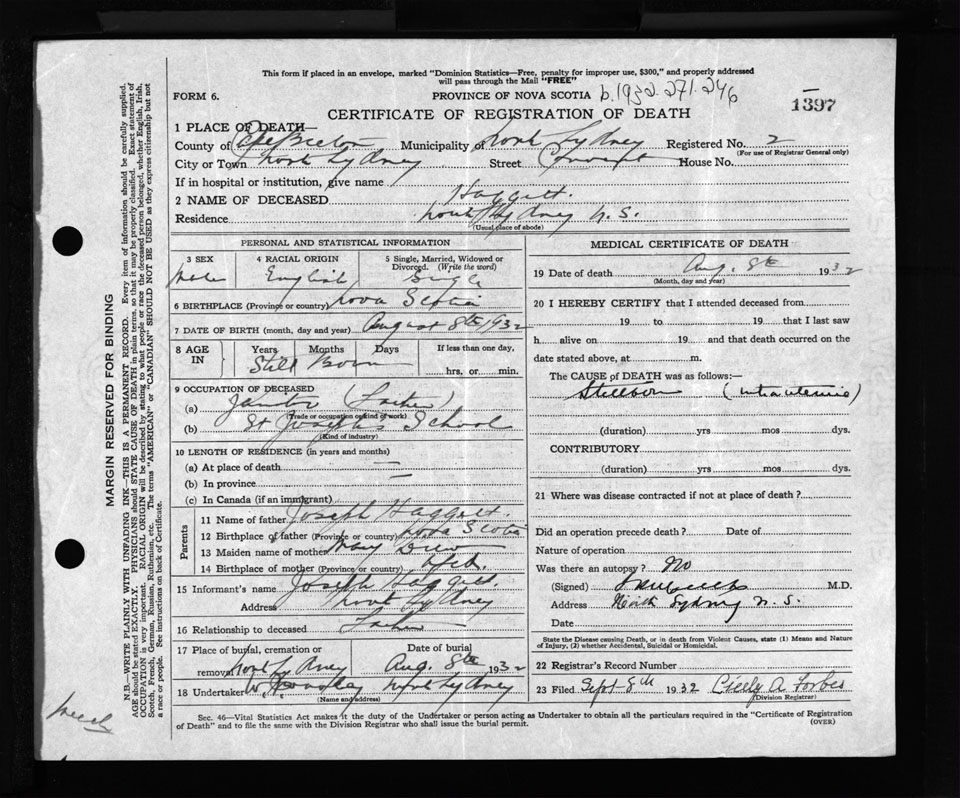 This form if placed in an envelope, marked "Dominion Statistics—Free, penalty for improper use, $300," and properly addressed
will pass through the Mail "FREE"
FORM 6. PROVINCE OF NOVA SCOTIA b.1932.271.246
CERTIFICATE OF REGISTRATION OF DEATH 1397
1 PLACE OF DEATH—
County of Cape Breton Municipality of North Sydney Registered No. 2
(For use of Registrar General only)
City or Town North Sydney Street Convent House No.
If in hospital or institution, give name
2 NAME OF DECEASED Haggett.
Residence North Sydney N.S.
(Usual place of abode)
PERSONAL AND STATISTICAL INFORMATION
3 SEX 4 RACIAL ORIGIN 5 Single, Married, Widowed or
Divorced. (Write the word)
Male English Single
6 BIRTHPLACE (Province or country) Nova Scotia
7 DATE OF BIRTH (month, day and year) August 8th 1932
8 AGE IN Years Months Days If less than one day,
Still Born hrs. or min.
9 OCCUPATION OF DECEASED
(a) Janitor (Father)
(Trade or occupation or kind of work)
(b) St Joseph's School
(Kind of industry)
10 LENGTH OF RESIDENCE (in years and months)
(a) At place of death —
(b) In province —
(c) In Canada (if an immigrant)
Parents
11 Name of father Joseph Haggett.
12 Birthplace of father (Province or country) Nova Scotia
13 Maiden name of mother Mary Drew
14 Birthplace of mother (Province or country) Nfld.
15 Informant's name Joseph Haggett.
Address North Sydney
16 Relationship to deceased Father
17 Place of burial, cremation or removal Date of burial
North Sydney Aug. 8th 1932
18 Undertaker North Sydney
(Name and address)
MEDICAL CERTIFICATE OF DEATH
19 Date of death Aug. 8th 1932
(Month, day and year)
20 I HEREBY CERTIFY that I attended deceased from
19 to 19 that I last saw
h alive on 19 and that death occurred on the
date stated above, at m.
The CAUSE of DEATH was as follows:—
Stillborn (intrauterine)
(duration) yrs mos dys.
CONTRIBUTORY
(duration) yrs. mos. dys.
21 Where was disease contracted if not at place of death?
Did an operation precede death? Date of
Nature of operation
Was there an autopsy? No
(Signed) M.D.
Address North Sydney N.S.
Date
State the Disease causing Death, or in death from Violent Causes, state (1) Means and Nature
of Injury, (2) whether Accidental, Suicidal or Homicidal.
22 Registrar's Record Number
23 Filed Sept 8th 1932 Cicely A Forbes
(Division Registrar)
Sec. 46—Vital Statistics Act makes it the duty of the Undertaker or person acting as Undertaker to obtain all the particulars required in the "Certificate of Registration
of Death" and to file the same with the Division Registrar who shall issue the burial permit. (OVER)
MARGIN RESERVED FOR BINDING
N.B.—WRITE PLAINLY WITH UNFADING INK—THIS IS A PERMANENT RECORD. Every item of information should be carefully supplied.
AGE should be stated EXACTLY. PHYSICIANS should STATE CAUSE OF DEATH in plain terms, so that it may be properly classified. Exact statement of
OCCUPATION is very important. RACIAL ORIGIN will be described by stating to what people or race the deceased person belonged, whether English, Irish,
Scotch, French, German, Russian, Ruthenian, etc. The terms "AMERICAN" or "CANADIAN" SHOULD NOT BE USED as they express citizenship but not
a race or people. See instructions on back of Certificate.